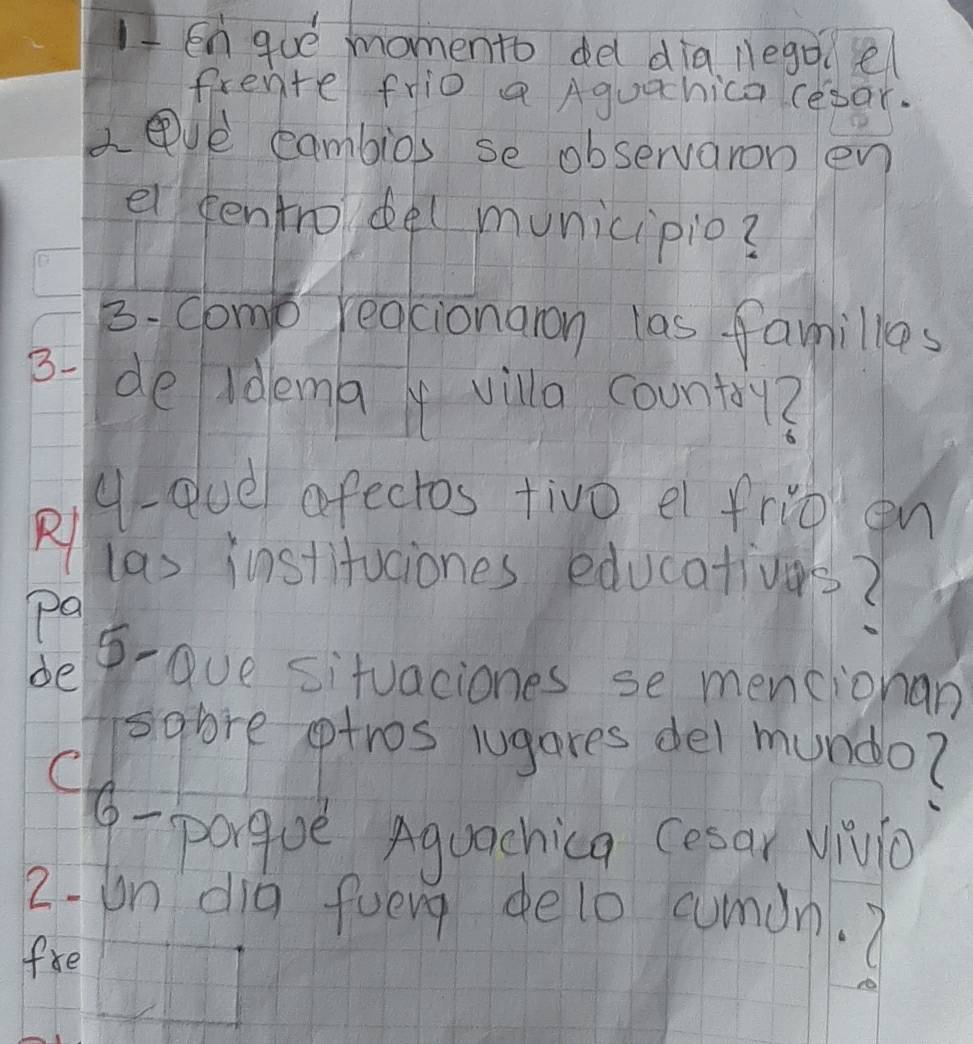 1- En qué momento del dia llegó el
frente frio a Aguachica cesar.
2 Qué cambios se observaron en
el centro del municipio?
3- Como reacionaron las familias
3-
de Idema y villa country?
4- que afectos tivo el frio en
R/
las instituciones educativas?
pa
5- que situaciones se mencionan
de
sobre otros lugares del mundo?
C
6- porqué Aguachica Cesar vivio
2- un dia fuera delo cumun.?
fre